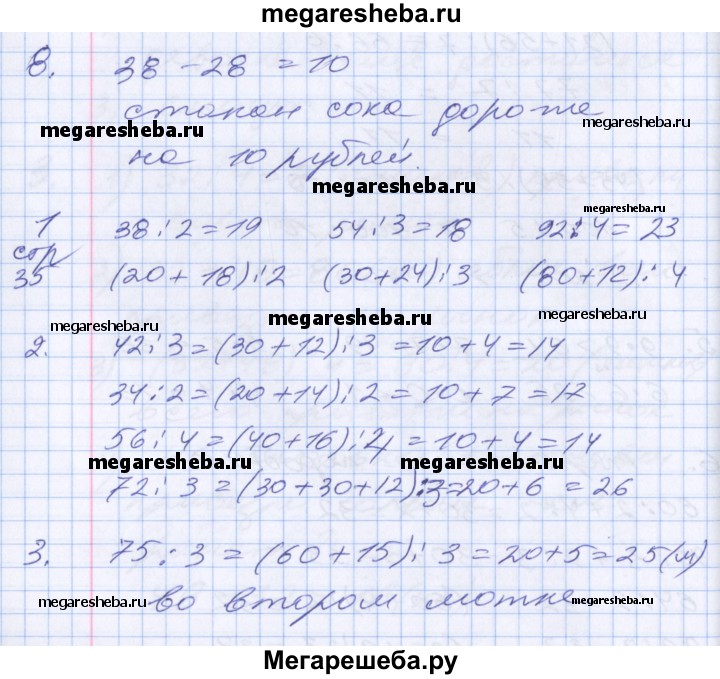 megaresheba.ru
8. 38 - 28 = 10
стакан сока дороже
megaresheba.ru megaresheba.ru
на 10 рублей.
megaresheba.ru
1 38 : 2 = 19 54 : 3 = 18 92 : 4 = 23
megaresheba.ru
стр
35 (20 + 18) : 2 (30 + 24) : 3 (80 + 12) : 4
megaresheba.ru megaresheba.ru megaresheba.ru
2. 42 : 3 = (30 + 12) : 3 = 10 + 4 = 14
34 : 2 = (20 + 14) : 2 = 10 + 7 = 17
56 : 4 = (40 + 16) : 4 = 10 + 4 = 14
megaresheba.ru megaresheba.ru
72 : 3 = (30 + 30 + 12) : 3 = 20 + 6 = 26
3. 75 : 3 = (60 + 15) : 3 = 20 + 5 = 25 (м)
megaresheba.ru во втором мотке megaresheba.ru
Мегарешеба.ру